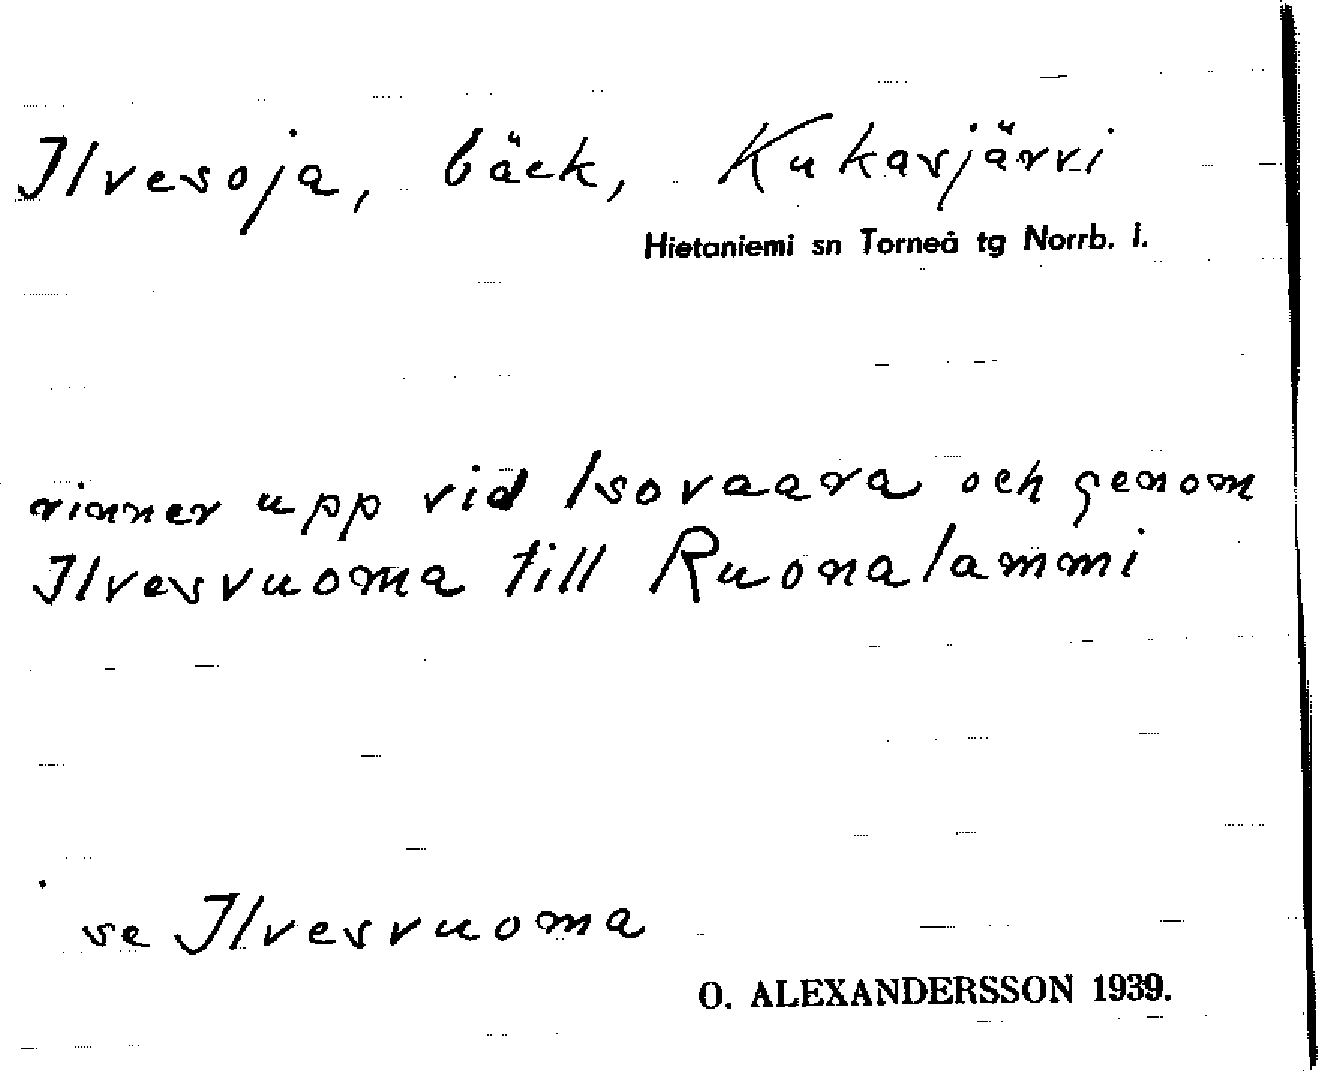 Ilvesoja, bäck, Kukasjärvi
Hietaniemi sn Torneå tg Norrb. l.
rinner upp vid Isovaara och genom
Ilvesvuoma till Ruonalammi
se Ilvesvuoma
O. ALEXANDERSSON 1939.